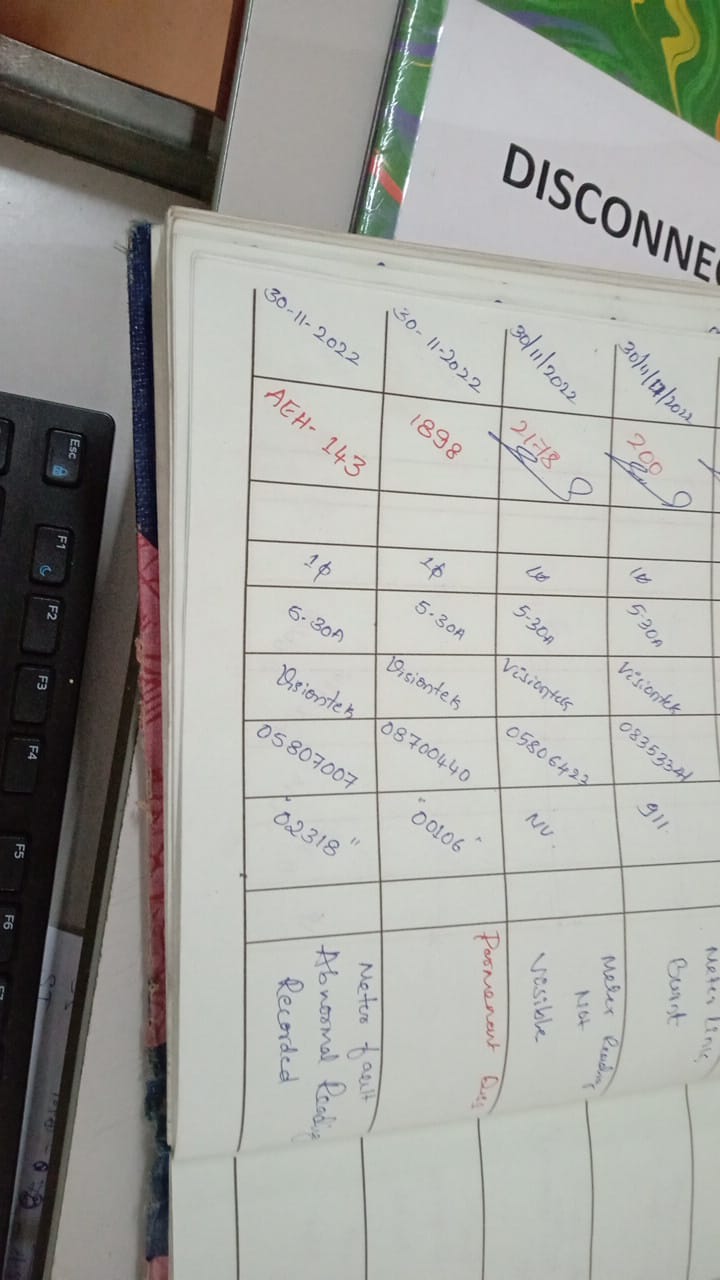 DISCONNEC
30/11/2022 200 1φ 5-30A Visiontek 08353341 911. Meter Link
Burst
30/11/2022 2178 1φ 5-30A Visiontek 05806422 NV. Meter Reading
Not
Vesible
30-11-2022 1898 1φ 5-30A Visiontek 08700440 "00106" Parmenant Dis
30-11-2022 AEH-143 1φ 5-30A Visiontek 05807007 "02318" Meter fault
Abnormal Reading
Recorded
Esc F1 F2 F3 F4 F5 F6